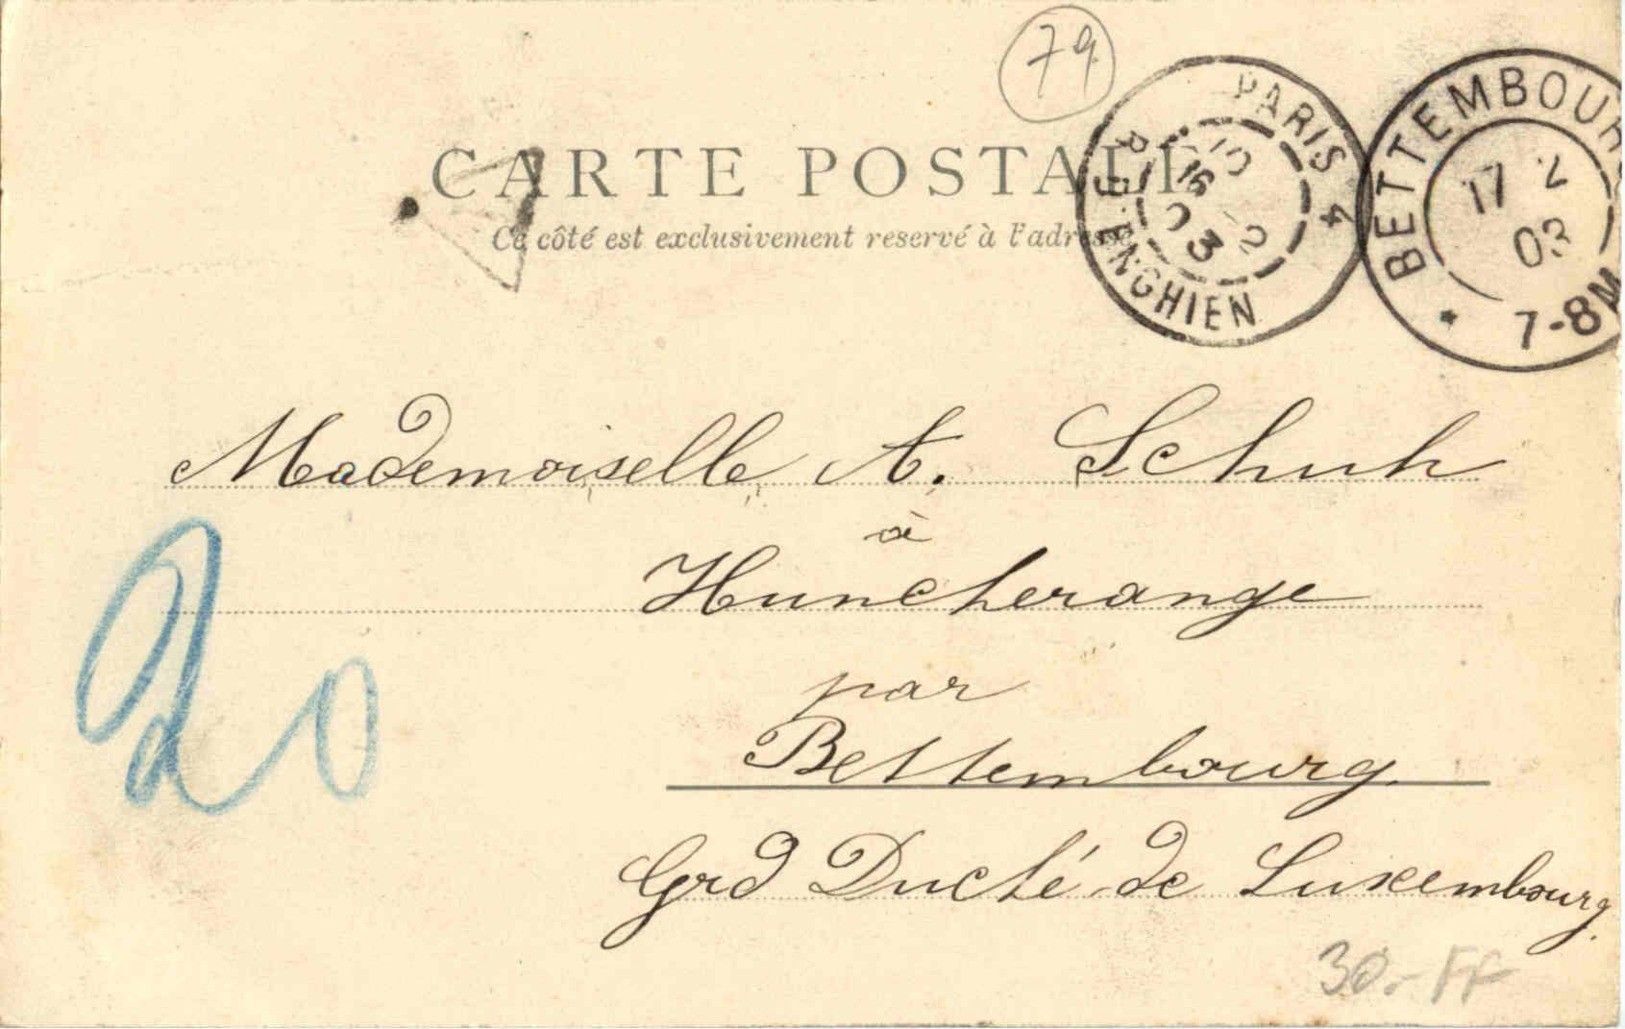 79
CARTE POSTALE
Ce côté est exclusivement reservé à l'adresse
PARIS 4
R. D'ENGHIEN
10
16 2
03
BETTEMBOURG
17 2
03
7-8M
T
Mademoiselle A. Schuh
à
Huncherange
par
Bettembourg
Grd Duché de Luxembourg.
20
30.- FF